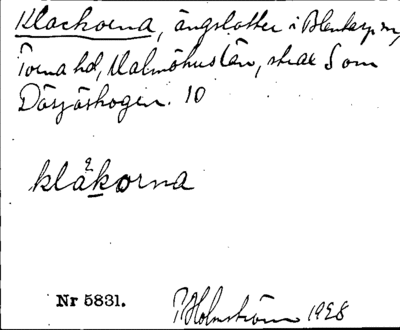 Klackorna, ängslotter i Blentarp sn,
Torna hd, Malmöhus län, strax S om
Dörjöskogen. 10
klåkorna
Nr 5831.
Holmström 1928